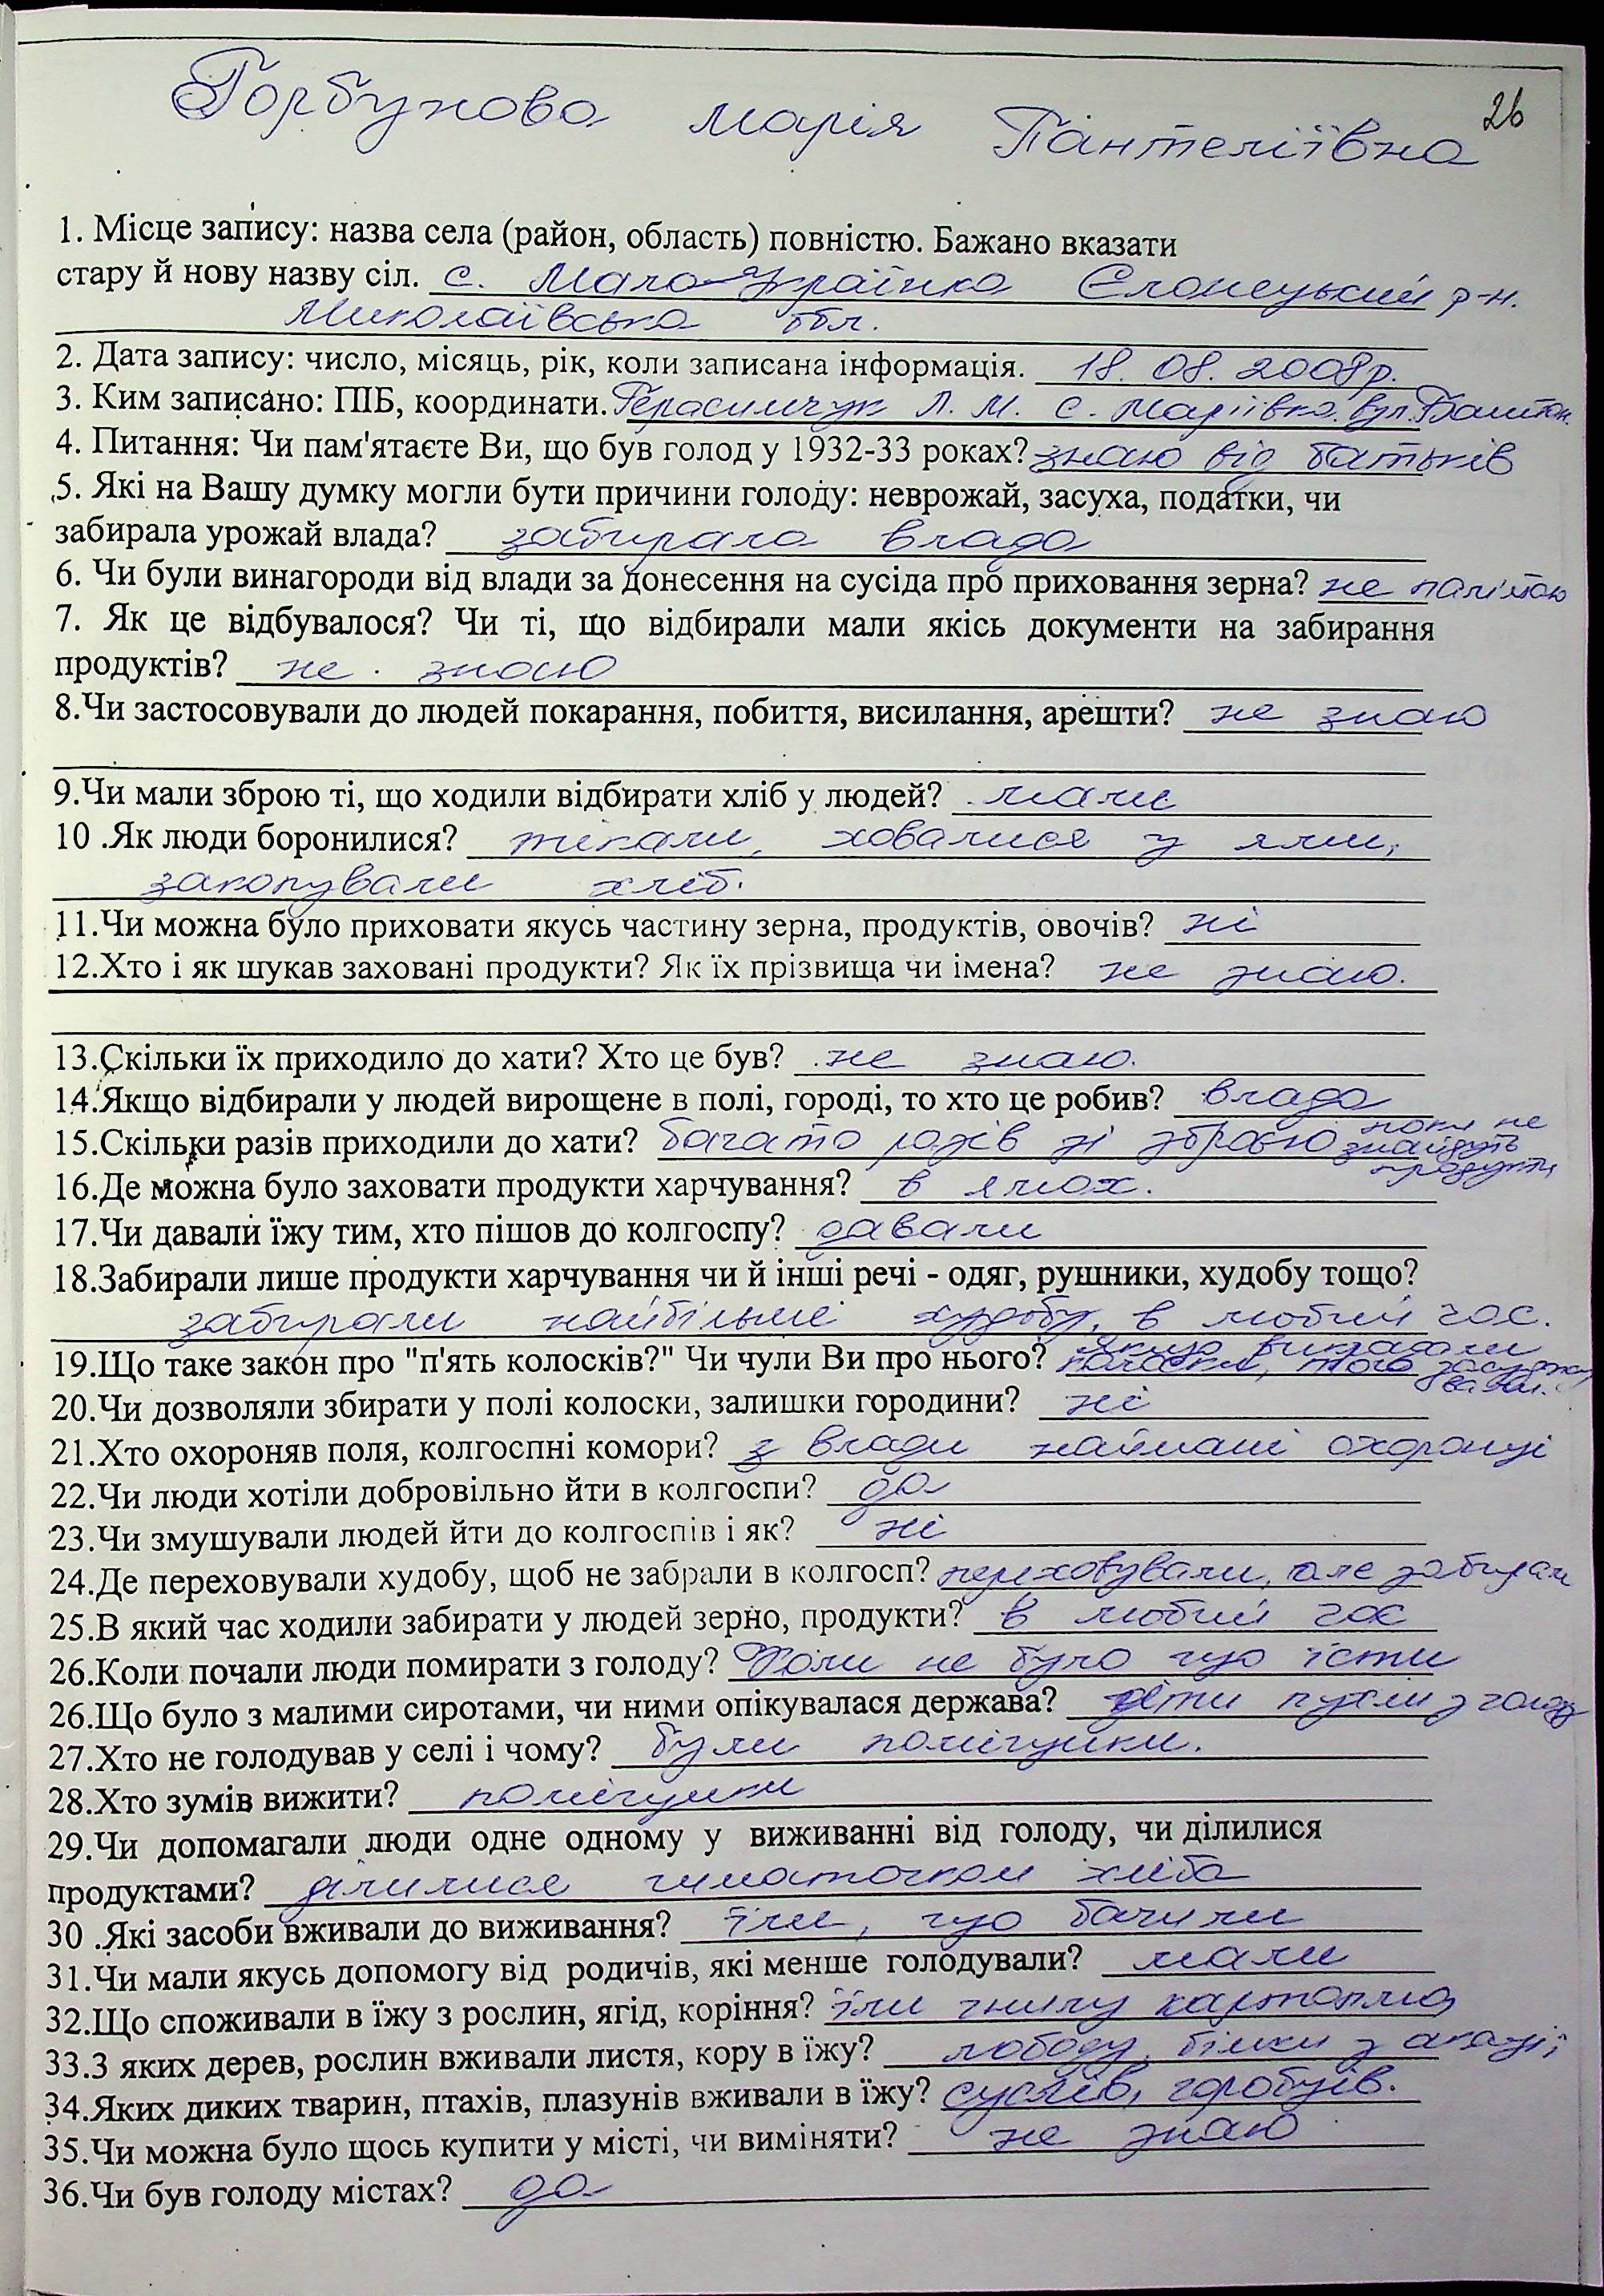 Горбунова Марія Пантеліївна
26
1. Місце запису: назва села (район, область) повністю. Бажано вказати
стару й нову назву сіл. с. Мала Українка Єланецький р-н.
Миколаївська обл.
2. Дата запису: число, місяць, рік, коли записана інформація. 18. 08. 2008р.
3. Ким записано: ПІБ, координати. Герасимчук Л. М. с. Маріївка. вул. Баштан.
4. Питання: Чи пам'ятаєте Ви, що був голод у 1932-33 роках? знаю від батьків
5. Які на Вашу думку могли бути причини голоду: неврожай, засуха, податки, чи
забирала урожай влада? забирала влада
6. Чи були винагороди від влади за донесення на сусіда про приховання зерна? не
7. Як це відбувалося? Чи ті, що відбирали мали якісь документи на забирання
продуктів? не знаю
8.Чи застосовували до людей покарання, побиття, висилання, арешти? не знаю
9.Чи мали зброю ті, що ходили відбирати хліб у людей? мали
10 .Як люди боронилися? тікали, ховалися у ями,
закопували хліб.
11.Чи можна було приховати якусь частину зерна, продуктів, овочів? ні
12.Хто і як шукав заховані продукти? Як їх прізвища чи імена? не знаю.
13.Скільки їх приходило до хати? Хто це був? не знаю.
14.Якщо відбирали у людей вирощене в полі, городі, то хто це робив? влада
15.Скільки разів приходили до хати? багато разів зі зброєю поки не
знайдуть
продукти
16.Де можна було заховати продукти харчування? в ямах.
17.Чи давали їжу тим, хто пішов до колгоспу? давали
18.Забирали лише продукти харчування чи й інші речі - одяг, рушники, худобу тощо?
забирали найбільше худобу, в любий час.
19.Що таке закон про "п'ять колосків?" Чи чули Ви про нього? якщо викрадали
колоски, того засуджували.
20.Чи дозволяли збирати у полі колоски, залишки городини? ні
21.Хто охороняв поля, колгоспні комори? з влади наймані охоронці
22.Чи люди хотіли добровільно йти в колгоспи? да
23.Чи змушували людей йти до колгоспів і як? ні
24.Де переховували худобу, щоб не забрали в колгосп? переховували, але забирали
25.В який час ходили забирати у людей зерно, продукти? в любий час
26.Коли почали люди помирати з голоду? Коли не було що їсти
26.Що було з малими сиротами, чи ними опікувалася держава? діти пухли з голоду
27.Хто не голодував у селі і чому? були помічники.
28.Хто зумів вижити? помічники
29.Чи допомагали люди одне одному у виживанні від голоду, чи ділилися
продуктами? ділилися шматочком хліба
30 .Які засоби вживали до виживання? їли, що бачили
31.Чи мали якусь допомогу від родичів, які менше голодували? мали
32.Що споживали в їжу з рослин, ягід, коріння? їли гнилу картоплю,
33.З яких дерев, рослин вживали листя, кору в їжу? лободу, білки з акації
34.Яких диких тварин, птахів, плазунів вживали в їжу? суслів, горобців.
35.Чи можна було щось купити у місті, чи виміняти? не знаю
36.Чи був голоду містах? да